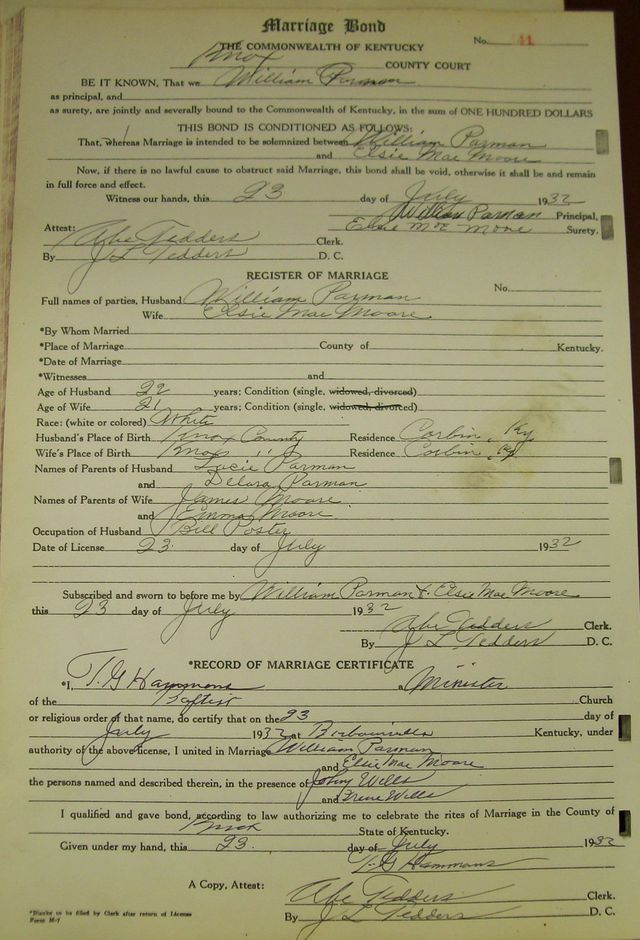 Marriage Bond
THE COMMONWEALTH OF KENTUCKY No. 41
Knox COUNTY COURT
BE IT KNOWN, That we William Parman
as principal, and
as surety, are jointly and severally bound to the Commonwealth of Kentucky, in the sum of ONE HUNDRED DOLLARS
THIS BOND IS CONDITIONED AS FOLLOWS:
That, whereas Marriage is intended to be solemnized between William Parman
and Elsie Mae Moore
Now, if there is no lawful cause to obstruct said Marriage, this bond shall be void, otherwise it shall be and remain
in full force and effect.
Witness our hands, this 23 day of July 1932
William Parman Principal,
Elsie Mae Moore Surety.
Attest:
Abe Tedders Clerk.
By J L Tedders D. C.
REGISTER OF MARRIAGE
Full names of parties, Husband William Parman No.
Wife Elsie Mae Moore.
*By Whom Married
*Place of Marriage County of Kentucky.
*Date of Marriage
*Witnesses and
Age of Husband 22 years; Condition (single, widowed, divorced)
Age of Wife 21 years; Condition (single, widowed, divorced)
Race: (white or colored) White
Husband's Place of Birth Knox County Residence Corbin, Ky.
Wife's Place of Birth Knox " Residence Corbin, Ky
Names of Parents of Husband Lucie Parman
and Dellara Parman
Names of Parents of Wife James Moore
and Emma Moore
Occupation of Husband Bill Poster
Date of License 23 day of July 1932
Subscribed and sworn to before me by William Parman & Elsie Mae Moore
this 23 day of July 1932
Abe Tedders Clerk.
By J L Tedders D. C.
*RECORD OF MARRIAGE CERTIFICATE
*I, T. G Hammons a Minister
of the Baptist Church
or religious order of that name, do certify that on the 23 day of
July 1932 at Barbourville Kentucky, under
authority of the above license, I united in Marriage William Parman
and Elsie Mae Moore
the persons named and described therein, in the presence of Johny Wills
and Wills
I qualified and gave bond, according to law authorizing me to celebrate the rites of Marriage in the County of
Knox State of Kentucky.
Given under my hand, this 23 day of July 1932
T. G Hammons
A Copy, Attest: Abe Tedders Clerk.
By J L Tedders D. C.
*Blanks to be filled by Clerk after return of License
Form M-7